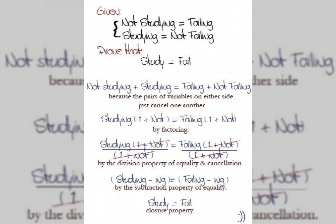 Given:
Not Studying = Failing
Studying = Not Failing
Prove that:
Study = Fail
Not studying + Studying = Failing + Not Failing
because the pairs of variables on either side
just cancel one another
Studying (1 + Not) = Failing (1 + Not)
by factoring.
Studying (1 + Not) = Failing (1 + Not)
(1 + Not) (1 + Not)
by the division property of equality & cancellation
(Studying - ing) = (Failing - ing)
by the subtraction property of equality.
Study = Fail
closure property